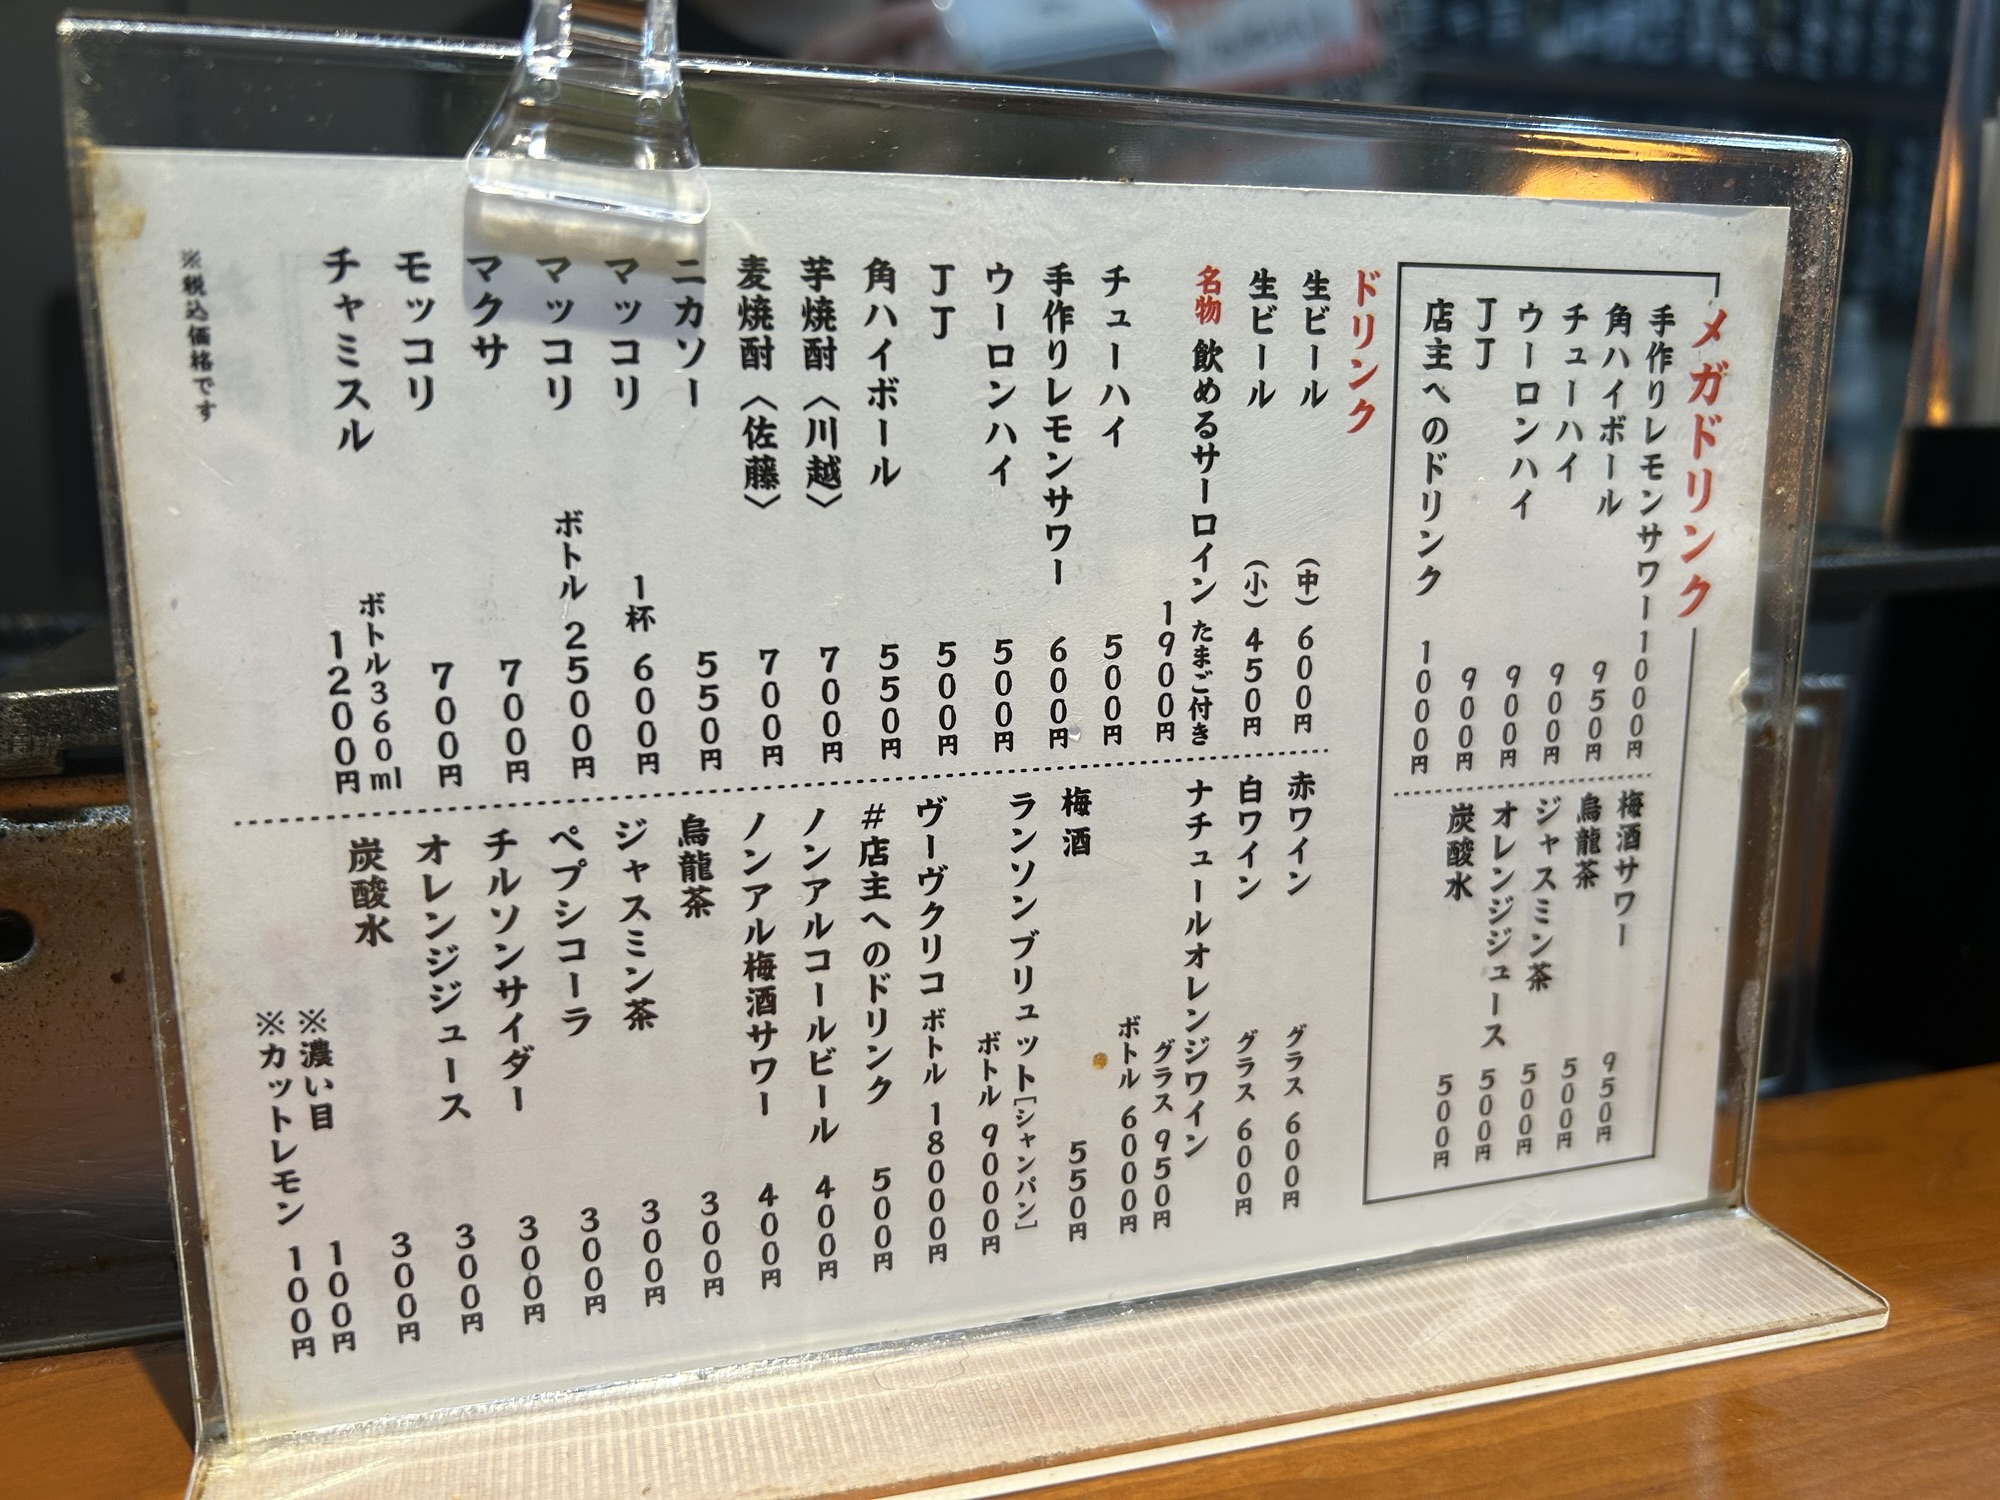 メガドリンク
手作りレモンサワー 1000円
角ハイボール 950円
チューハイ 900円
ウーロンハイ 900円
丁丁 900円
店主へのドリンク 1000円
梅酒サワー 950円
烏龍茶 500円
ジャスミン茶 500円
オレンジジュース 500円
炭酸水 500円
ドリンク
生ビール (中) 600円
生ビール (小) 450円
名物 飲めるサーロイン たまご付き
1900円
チューハイ 500円
手作りレモンサワー 600円
ウーロンハイ 500円
丁丁 500円
角ハイボール 550円
芋焼酎〈川越〉 700円
麦焼酎〈佐藤〉 700円
ニカソー 550円
マッコリ 1杯 600円
マッコリ ボトル 2500円
マクサ 700円
モッコリ 700円
チャミスル ボトル360ml
1200円
赤ワイン グラス 600円
白ワイン グラス 600円
ナチュールオレンジワイン
グラス 950円
ボトル 6000円
梅酒 550円
ランソンブリュット[シャンパン]
ボトル 9000円
ヴーヴクリコ ボトル 18000円
#店主へのドリンク 500円
ノンアルコールビール 400円
ノンアル梅酒サワー 400円
烏龍茶 300円
ジャスミン茶 300円
ペプシコーラ 300円
チルソンサイダー 300円
オレンジジュース 300円
炭酸水 300円
※濃い目 100円
※カットレモン 100円
※税込価格です